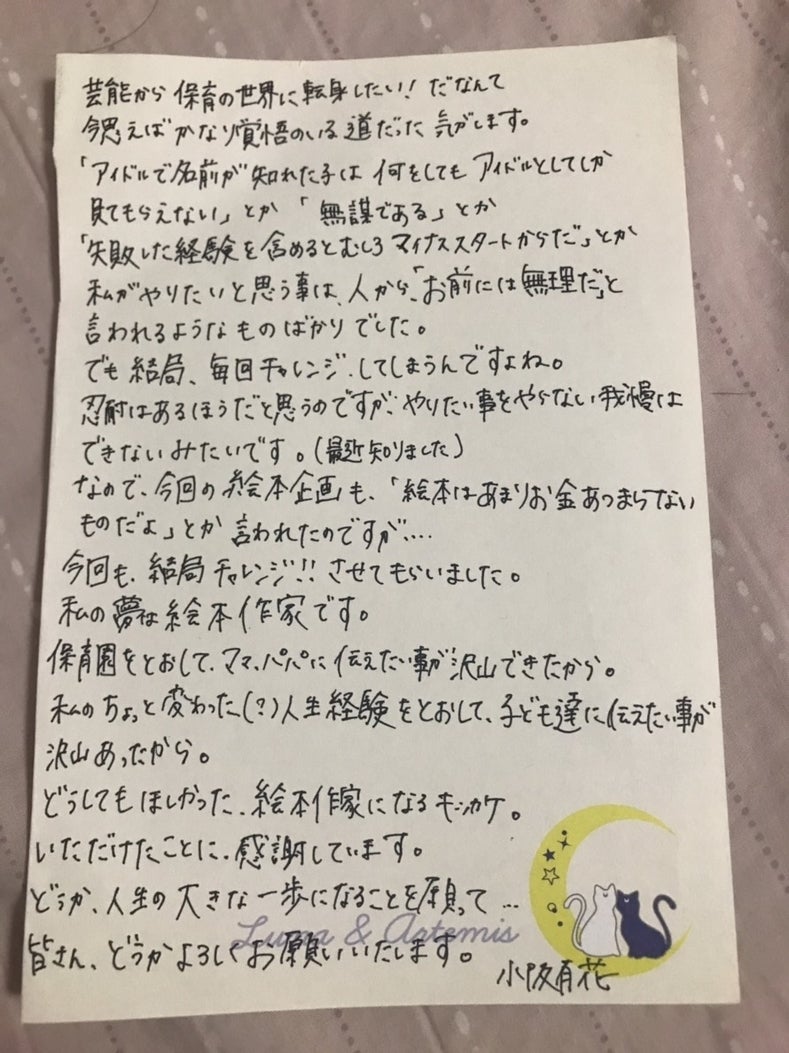 芸能から保育の世界に転身したい！だなんて
今思えばかなり覚悟のいる道だった気がします。
「アイドルで名前が知れた子は何をしてもアイドルとしてしか
見てもらえない」とか「無謀である」とか
「失敗した経験を含めるとむしろマイナススタートからだ」とか
私がやりたいと思う事は、人から、「お前には無理だ」と
言われるようなものばかりでした。
でも結局、毎回チャレンジ、してしまうんですよね。
忍耐はあるほうだと思うのですが、やりたい事をやらない我慢は
できないみたいです。(最近知りました)
なので、今回の絵本企画も、「絵本はあまりお金あつまらない
ものだよ」とか言われたのですが….
今回も、結局チャレンジ!!させてもらいました。
私の夢は絵本作家です。
保育園をとおして、ママ、パパに伝えたい事が沢山できたから。
私のちょっと変わった(?)人生経験をとおして、子ども達に伝えたい事が
沢山あったから。
どうしてもほしかった、絵本作家になるキッカケ。
いただけたことに、感謝しています。
どうか、人生の大きな一歩になることを願って…
Luna & Artemis
皆さん、どうかよろしくお願いいたします。
小阪有花